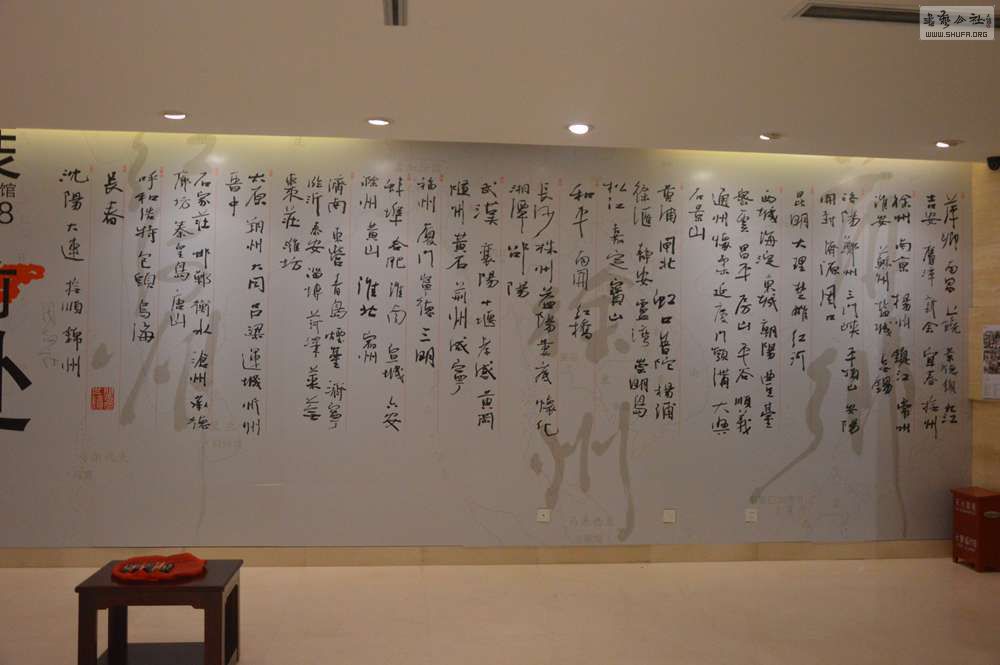 萍鄉 南昌 上饒 景德鎮 九江
吉安 鷹潭 新余 宜春 撫州
徐州 南京 揚州 鎮江 常州
淮安 蘇州 鹽城 無錫
洛陽 鄭州 三门峽 平頂山 安陽
開封 濟源 周口
昆明 大理 楚雄 红河
西城 海淀 東城 朝陽 豐臺
密雲 昌平 房山 平谷 順義
通州 懷柔 延慶 门頭溝 大興
石景山
黄浦 闸北 虹口 普陀 楊浦
徐滙 静安 盧湾 崇明島
松江 嘉定 寶山
和平 南開 红橋
長沙 株州 益陽 婁底 懷化
湘潭 邵陽
武漢 襄陽 十堰 孝感 黄岡
隨州 黄石 荊州 咸寧
福州 厦门 寧德 三明
蚌埠 合肥 淮南 宣城 六安
滁州 黄山 淮北 宿州
濟南 東營 青島 煙臺 濟寧
臨沂 泰安 淄博 菏澤 萊蕪
棗莊 濰坊
太原 朔州 大同 吕梁 運城 忻州
晋中
石家莊 邯鄲 衡水 滄州 承德
廊坊 秦皇島 唐山
呼和浩特 包頭 烏海
長春
沈陽 大連 撫順 錦州
馆
8
处
书艺公社
WWW.SHUFA.ORG